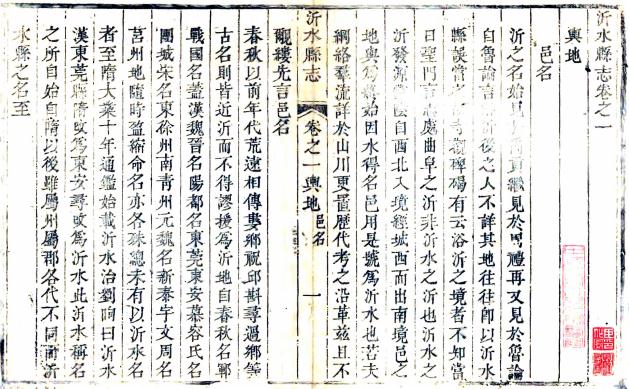 沂水縣志卷之一
輿地
邑名
沂之名始見於貢繼見於周禮再又見於魯論
自魯論言沂後之人不詳其地往往即以沂水
縣誤當之寺觀碑碣有云浴沂之境者不知當
日聖門言志處曲阜之沂非沂水之沂也沂水之
沂發源蒙陰自西北入境經城西而出南境邑之
地輿爲始因水得名邑用是號爲沂水也若夫
網絡羣流詳於山川更置歷代考之沿革茲且不
沂水縣志 卷之一輿地 邑名 一
覶縷先言邑名
春秋以前年代荒遠相傳婁鄉祝邱斟尋過鄉等
古名則皆近沂而不得謬援爲沂地自春秋名鄆
戰國名蓋漢魏晉名陽都名東莞東安慕容氏名
團城宋名東徐州南青州元魏名新泰宇文周名
莒州地隨時盈縮命名亦各殊總未有以沂水名
者至隋大業十年通鑑始載沂水治劉昫曰沂水
漢東莞縣隋改爲東安尋改爲沂水此沂水稱名
之所自始自隋以後雖屬州屬郡各代不同而沂
水縣之名至